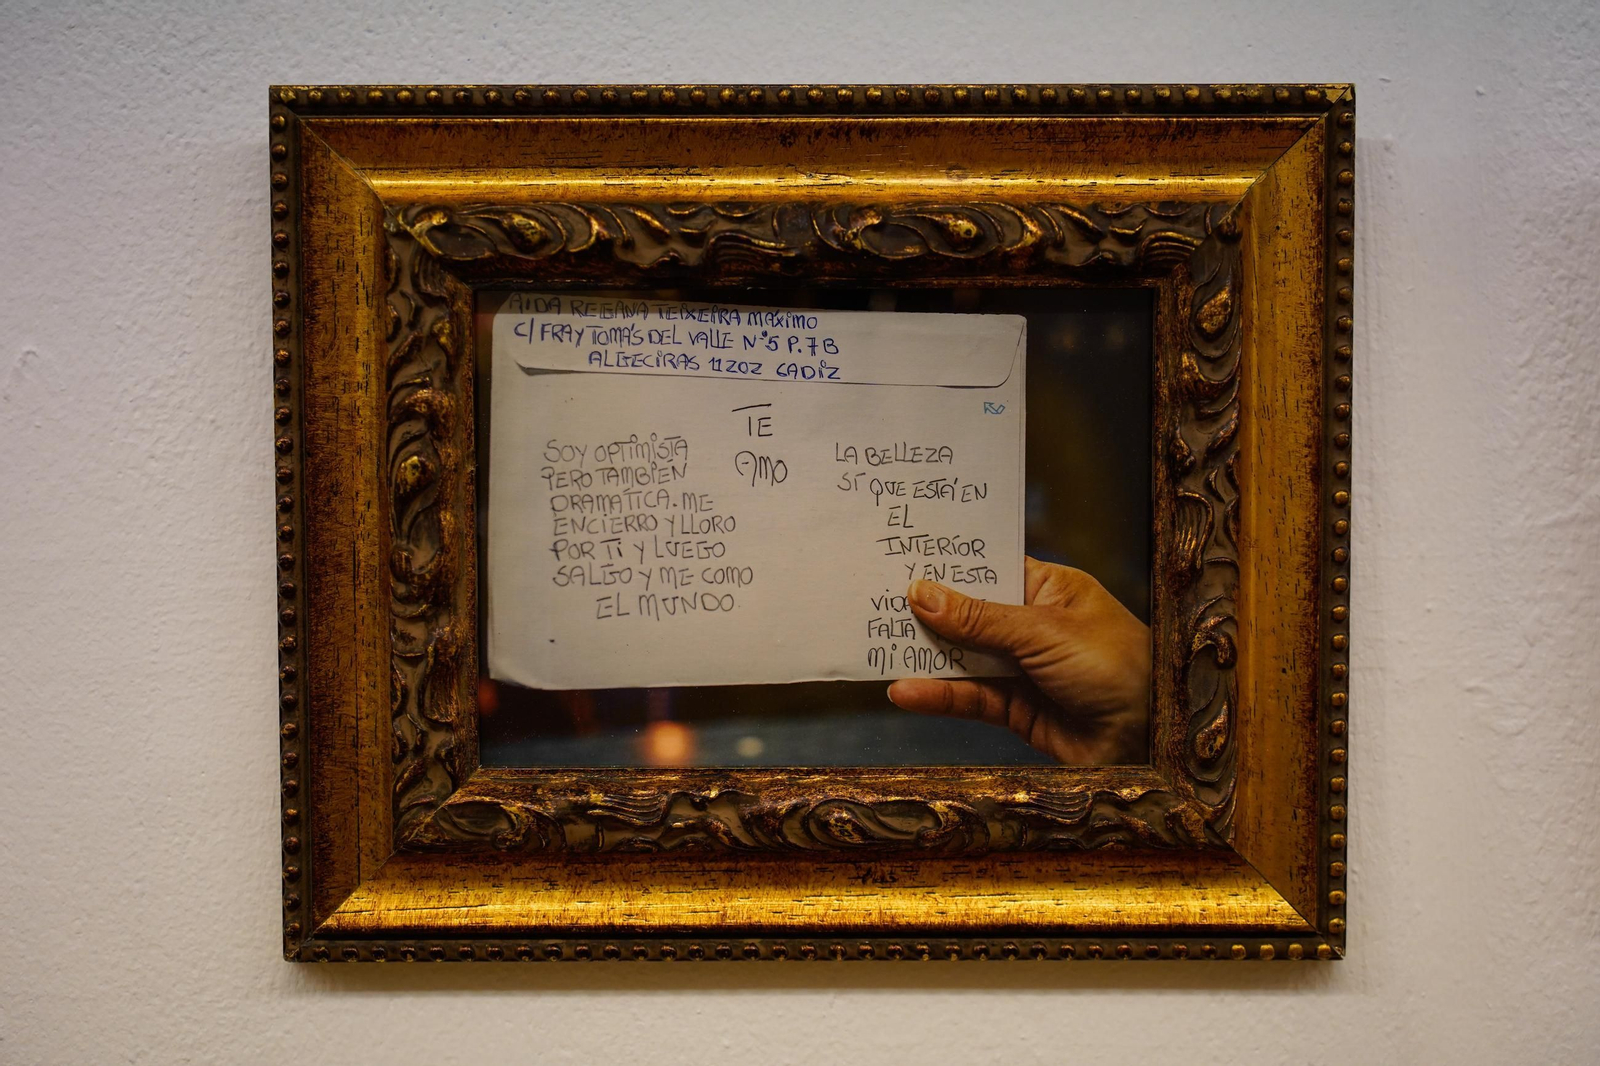 AIDA REGINA TEIXEIRA MÁXIMO
C/ FRAY TOMÁS DEL VALLE Nº5 P.7B
ALGECIRAS 11202 CADIZ
TE
AMO
SOY OPTIMISTA
PERO TAMBIEN
DRAMATICA. ME
ENCIERRO Y LLORO
POR TI Y LUEGO
SALGO Y ME COMO
EL MUNDO
LA BELLEZA
SI QUE ESTÁ EN
EL
INTERIOR
Y EN ESTA
FALTA
MI AMOR